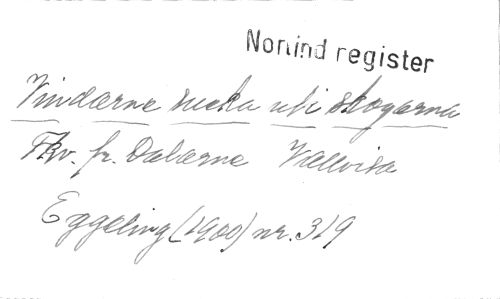 Nonind register
Vindarne sucka uti skogarna
Fkv. fr. Dalarne Vallvisa
Eggeling (1900) nr. 319